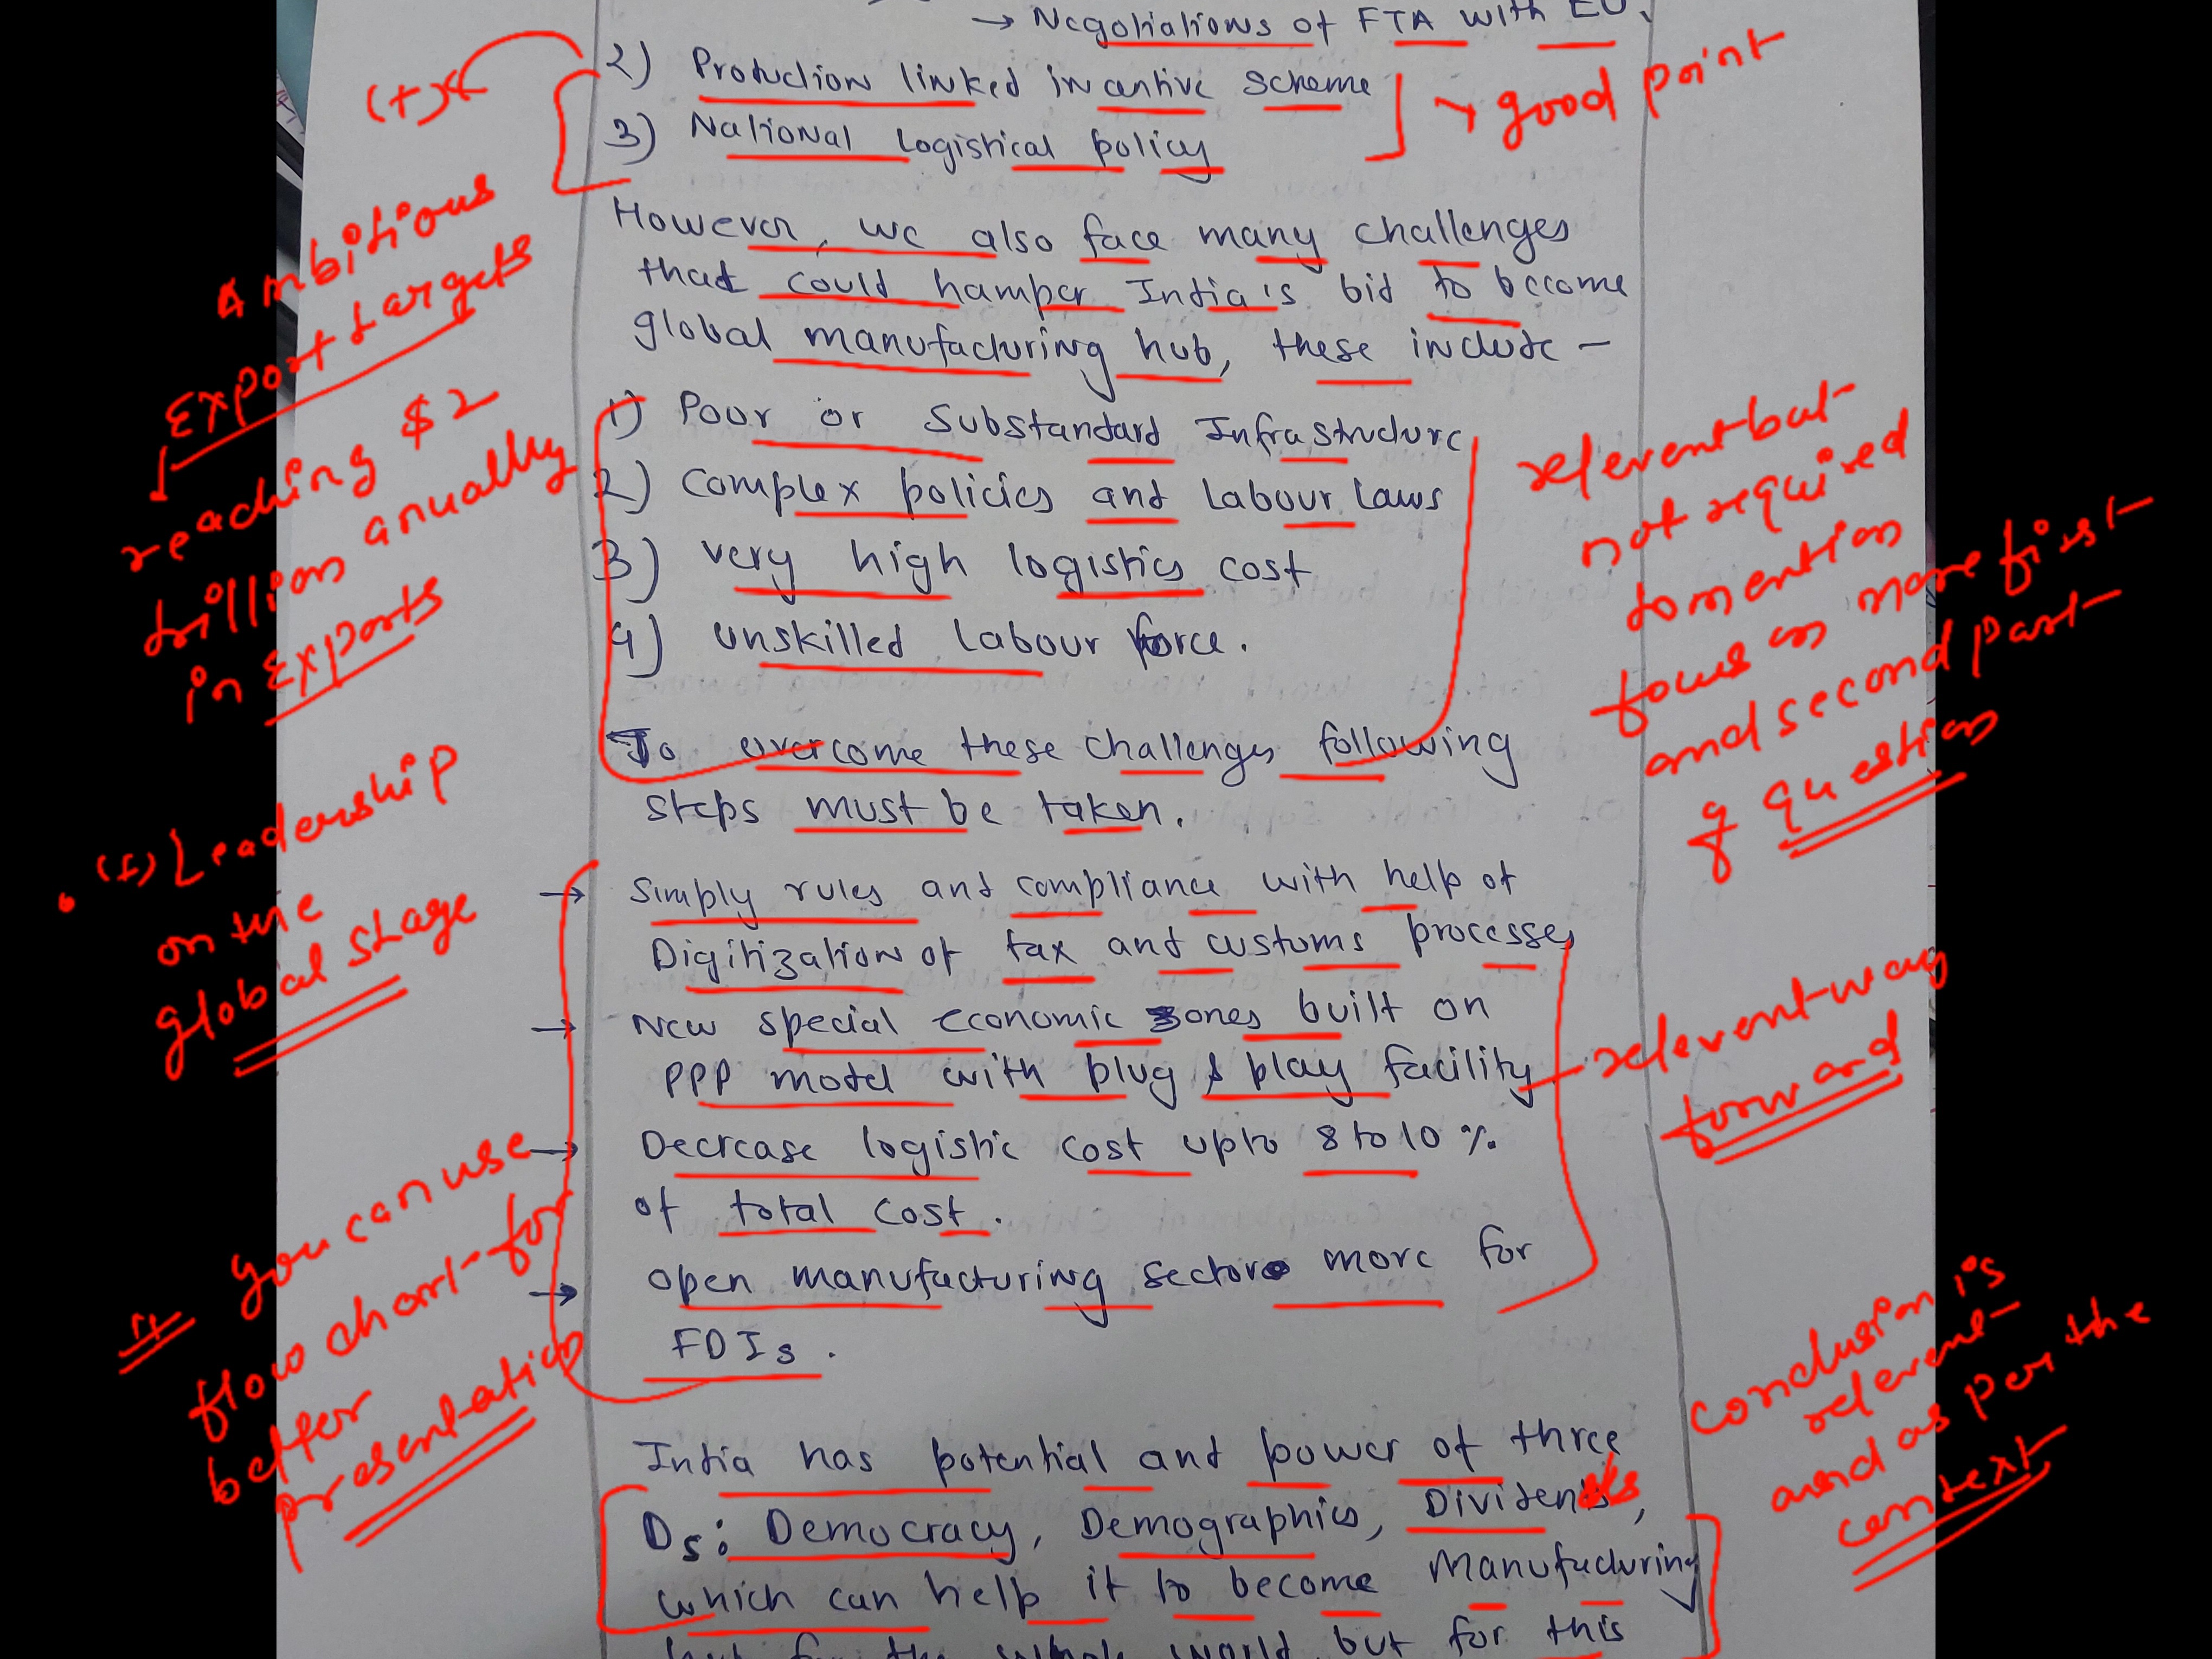 → Negotiations of FTA with EU.
2) Production linked incentive scheme
3) National Logistical policy
(+)
good point
However, we also face many challenges
that could hamper India's bid to become
global manufacturing hub, these include –
Ambitious
Export targets
reaching $2
trillion anually
in Exports
1) Pour or Substandard Infrastructure
2) Complex policies and Labour Laws
3) very high logistics cost
4) unskilled labour force.
relevent but
not required
to mention
focus on more first
and second part
of question
To overcome these challenges following
steps must be taken.
(+) Leadership
on the
global stage
→ Simply rules and compliance with help of
Digitization of tax and customs processes
→ New special economic zones built on
PPP model with plug & play facility
→ Decrease logistic cost upto 8 to 10 %
of total cost.
→ open manufacturing sector more for
FDIs.
relevent way
forward
you can use
flow chart for
better
presentation
India has potential and power of three
Ds: Democracy, Demographics, Dividends,
which can help it to become Manufacturing
the whole world but for this
conclusion is
relevent
and as per the
context